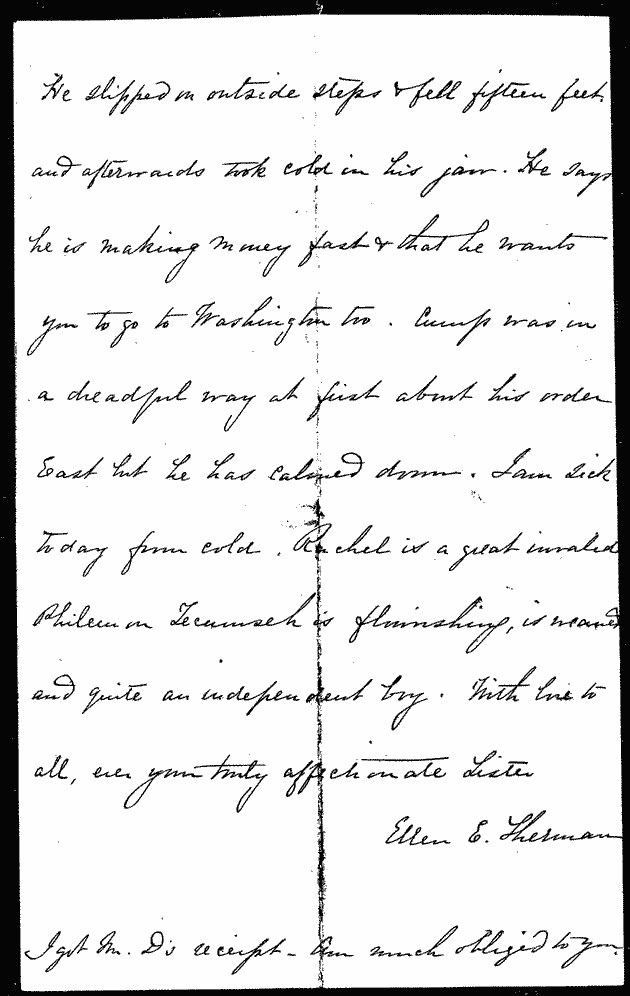 He slipped on outside steps & fell fifteen feet
and afterwards took cold in his jaw. He says
he is making money fast & that he wants
you to go to Washington too. Cump was in
a dreadful way at first about his order
East but he has calmed down. I am sick
today from cold. Rachel is a great invalid
Philemon Tecumseh is flourishing, is weaned
and quite an independent boy. With love to
all, ever your truly affectionate Sister
Ellen E. Sherman
I got Mr. D's receipt - Am much obliged to you.